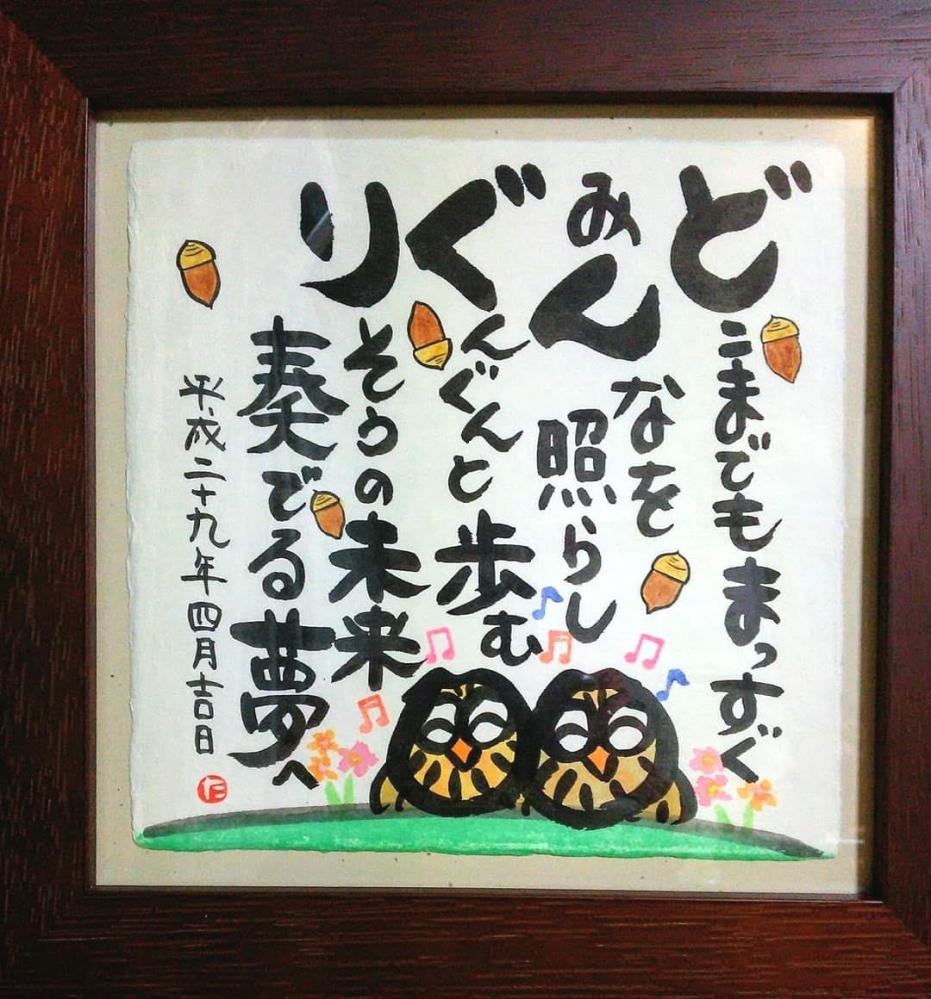 どこまでもまっすぐ
みんなを
照らし
ぐんぐんと
歩む
りそうの未来
奏でる夢へ
平成二十九年四月吉日